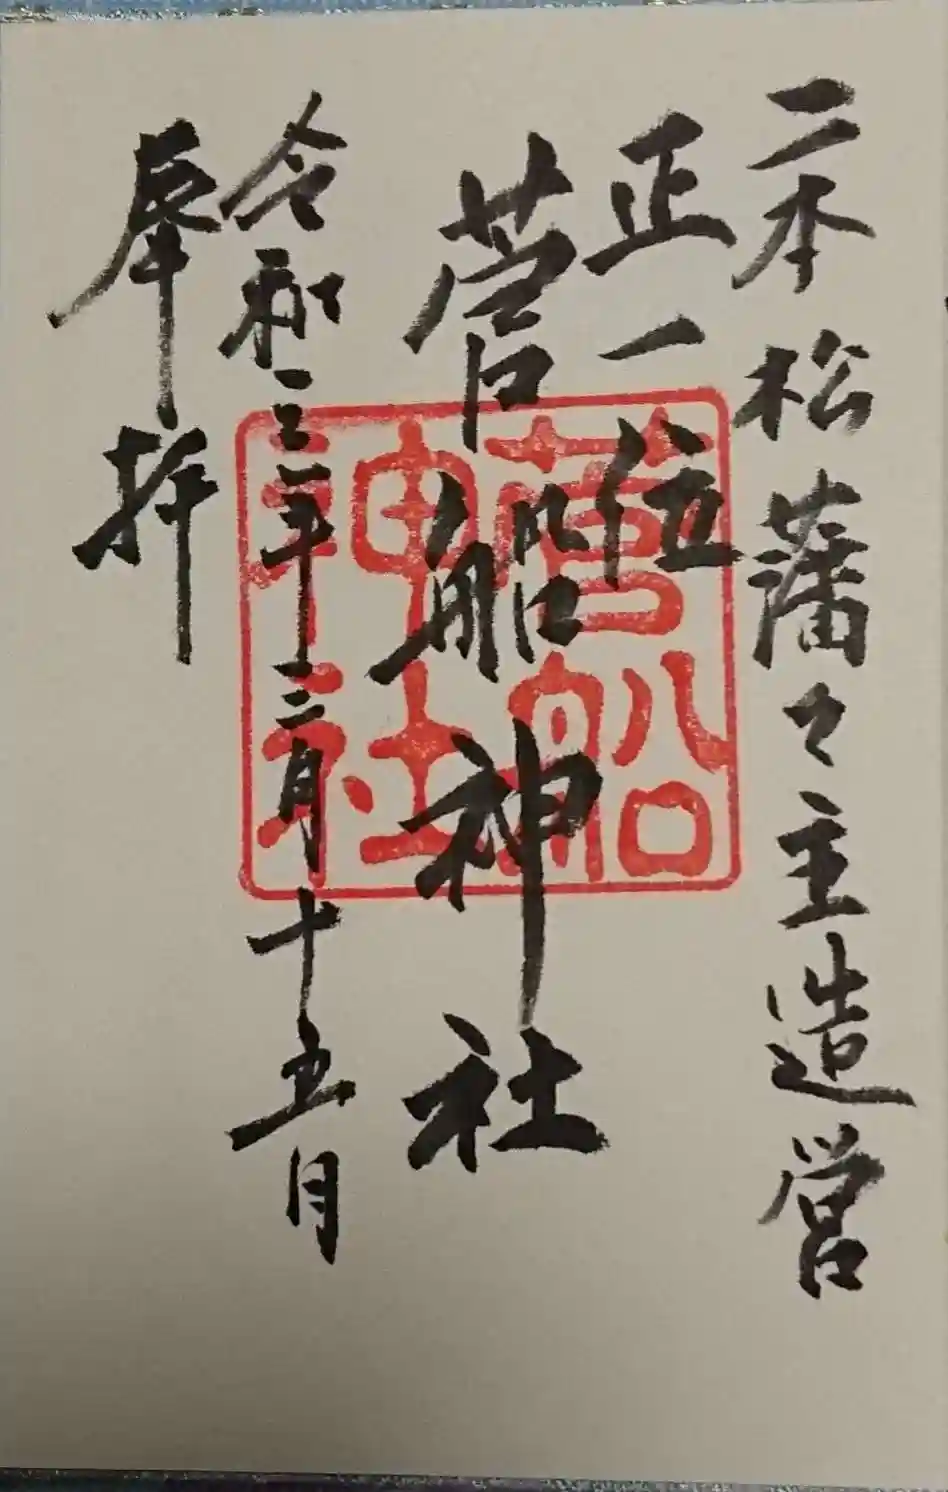 二本松藩々主造営
正一位
菅船神社
令和三年二月十五日
奉拝
菅船
神社